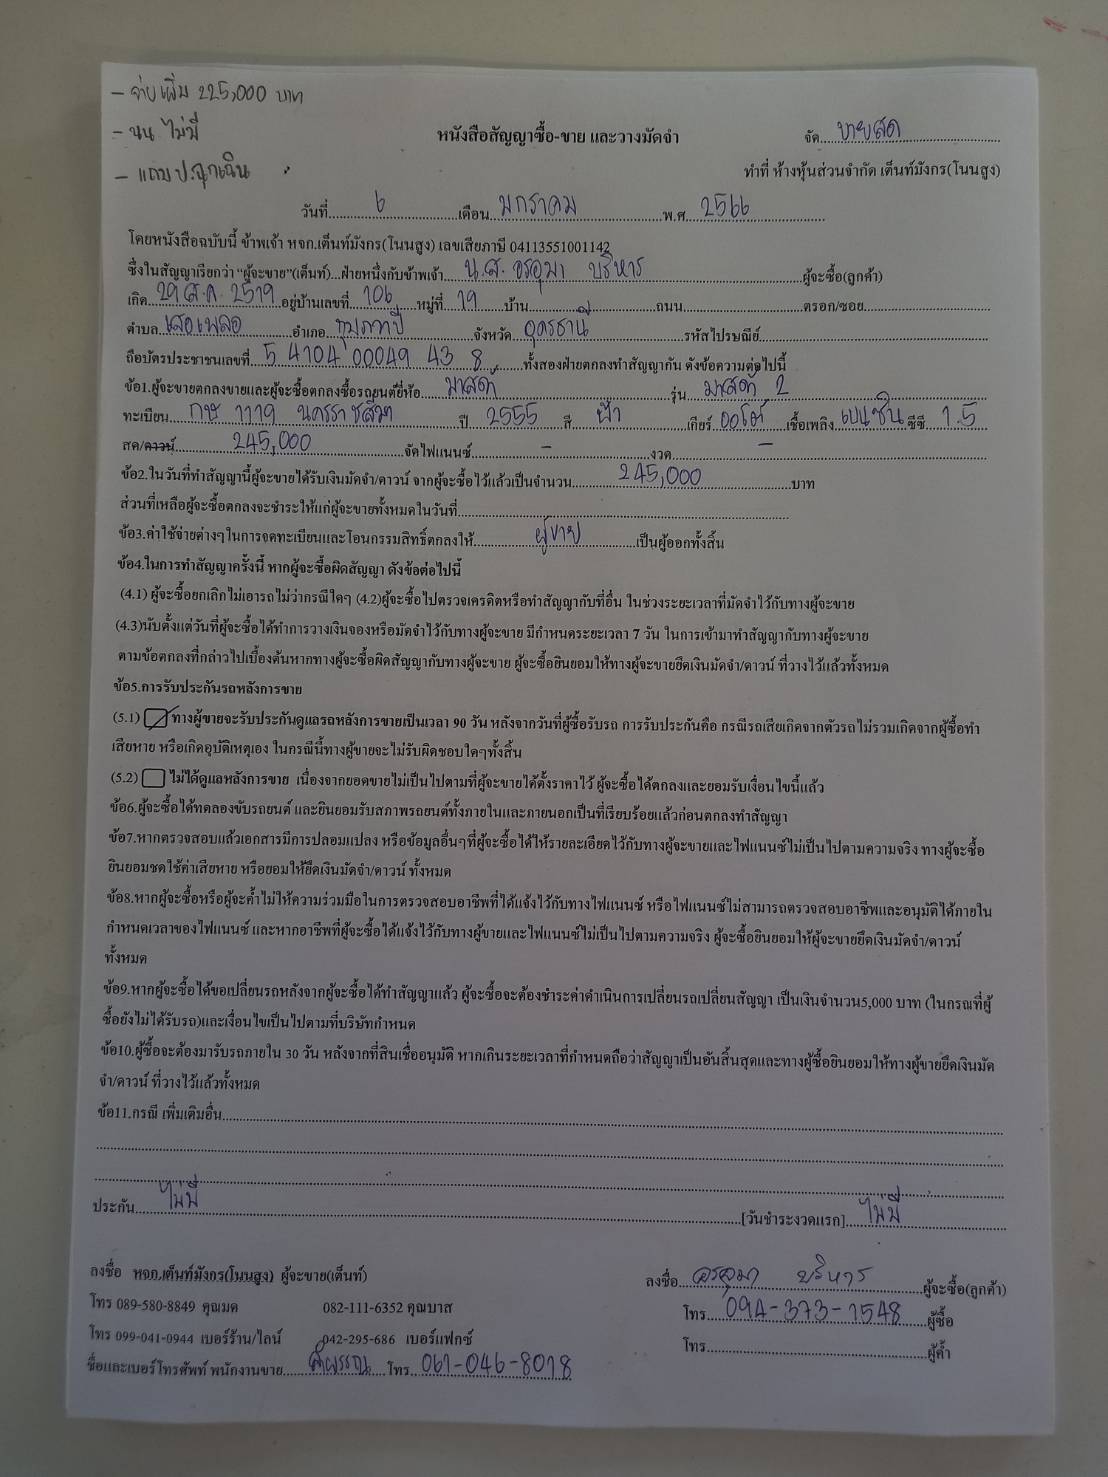 - จ่ายเพิ่ม 225,000 บาท
- นน ไม่มี
หนังสือสัญญาซื้อ-ขาย และวางมัดจำ
จัด ขายสด
- แถม ป.ฉุกเฉิน
ทำที่ ห้างหุ้นส่วนจำกัด เต็นท์มังกร(โนนสูง)
วันที่ 6 เดือน มกราคม พ.ศ. 2566
โดยหนังสือฉบับนี้ ข้าพเจ้า หจก.เต็นท์มังกร(โนนสูง) เลขเสียภาษี 04113551001142
ซึ่งในสัญญาเรียกว่า "ผู้จะขาย"(เต็นท์)...ฝ่ายหนึ่งกับข้าพเจ้า น.ส. อรอุมา บริหาร ผู้จะซื้อ(ลูกค้า)
เกิด 29 ส.ค. 2519 อยู่บ้านเลขที่ 106 หมู่ที่ 19 บ้าน ถนน ตรอก/ซอย
ตำบล เสอเพลอ อำเภอ กุมภวาปี จังหวัด อุดรธานี รหัสไปรษณีย์
ถือบัตรประชาชนเลขที่ 5 4104 00049 43 8 ทั้งสองฝ่ายตกลงทำสัญญากัน ดังข้อความต่อไปนี้
ข้อ1.ผู้จะขายตกลงขายและผู้จะซื้อตกลงซื้อรถยนต์ยี่ห้อ มาสด้า รุ่น มาสด้า 2
ทะเบียน กษ 1119 นครราชสีมา ปี 2555 สี ฟ้า เกียร์ ออโต้ เชื้อเพลิง เบนซิน ซีซี 1.5
สด/ดาวน์ 245,000 จัดไฟแนนซ์ - งวด -
ข้อ2.ในวันที่ทำสัญญานี้ผู้จะขายได้รับเงินมัดจำ/ดาวน์ จากผู้จะซื้อไว้แล้วเป็นจำนวน 245,000 บาท
ส่วนที่เหลือผู้จะซื้อตกลงจะชำระให้แก่ผู้จะขายทั้งหมดในวันที่
ข้อ3.ค่าใช้จ่ายต่างๆในการจดทะเบียนและโอนกรรมสิทธิ์ตกลงให้ ผู้ขาย เป็นผู้ออกทั้งสิ้น
ข้อ4.ในการทำสัญญาครั้งนี้ หากผู้จะซื้อผิดสัญญา ดังข้อต่อไปนี้
(4.1) ผู้จะซื้อยกเลิกไม่เอารถไม่ว่ากรณีใดๆ (4.2)ผู้จะซื้อไปตรวจเครดิตหรือทำสัญญากับที่อื่น ในช่วงระยะเวลาที่มัดจำไว้กับทางผู้จะขาย
(4.3)นับตั้งแต่วันที่ผู้จะซื้อได้ทำการวางเงินจองหรือมัดจำไว้กับทางผู้จะขาย มีกำหนดระยะเวลา 7 วัน ในการเข้ามาทำสัญญากับทางผู้จะขาย
ตามข้อตกลงที่กล่าวไปเบื้องต้นหากทางผู้จะซื้อผิดสัญญากับทางผู้จะขาย ผู้จะซื้อยินยอมให้ทางผู้จะขายยึดเงินมัดจำ/ดาวน์ ที่วางไว้แล้วทั้งหมด
ข้อ5.การรับประกันรถหลังการขาย
(5.1) ทางผู้ขายจะรับประกันดูแลรถหลังการขายเป็นเวลา 90 วัน หลังจากวันที่ผู้ซื้อรับรถ การรับประกันคือ กรณีรถเสียเกิดจากตัวรถ ไม่รวมเกิดจากผู้ซื้อทำ
เสียหาย หรือเกิดอุบัติเหตุเอง ในกรณีนี้ทางผู้ขายจะไม่รับผิดชอบใดๆทั้งสิ้น
(5.2) ไม่ได้ดูแลหลังการขาย เนื่องจากยอดขายไม่เป็นไปตามที่ผู้จะขายได้ตั้งราคาไว้ ผู้จะซื้อได้ตกลงและยอมรับเงื่อนไขนี้แล้ว
ข้อ6.ผู้จะซื้อได้ทดลองขับรถยนต์ และยินยอมรับสภาพรถยนต์ทั้งภายในและภายนอกเป็นที่เรียบร้อยแล้วก่อนตกลงทำสัญญา
ข้อ7.หากตรวจสอบแล้วเอกสารมีการปลอมแปลง หรือข้อมูลอื่นๆที่ผู้จะซื้อได้ให้รายละเอียดไว้กับทางผู้จะขายและไฟแนนซ์ไม่เป็นไปตามความจริง ทางผู้จะซื้อ
ยินยอมชดใช้ค่าเสียหาย หรือยอมให้ยึดเงินมัดจำ/ดาวน์ ทั้งหมด
ข้อ8.หากผู้จะซื้อหรือผู้จะค้ำไม่ให้ความร่วมมือในการตรวจสอบอาชีพที่ได้แจ้งไว้กับทางไฟแนนซ์ หรือไฟแนนซ์ไม่สามารถตรวจสอบอาชีพและอนุมัติได้ภายใน
กำหนดเวลาของไฟแนนซ์ และหากอาชีพที่ผู้จะซื้อได้แจ้งไว้กับทางผู้ขายและไฟแนนซ์ไม่เป็นไปตามความจริง ผู้จะซื้อยินยอมให้ผู้จะขายยึดเงินมัดจำ/ดาวน์
ทั้งหมด
ข้อ9.หากผู้จะซื้อได้ขอเปลี่ยนรถหลังจากผู้จะซื้อได้ทำสัญญาแล้ว ผู้จะซื้อจะต้องชำระค่าดำเนินการเปลี่ยนรถเปลี่ยนสัญญา เป็นเงินจำนวน5,000 บาท (ในกรณที่ผู้
ซื้อยังไม่ได้รับรถ)และเงื่อนไขเป็นไปตามที่บริษัทกำหนด
ข้อ10.ผู้ซื้อจะต้องมารับรถภายใน 30 วัน หลังจากที่สินเชื่ออนุมัติ หากเกินระยะเวลาที่กำหนดถือว่าสัญญาเป็นอันสิ้นสุดและทางผู้ซื้อยินยอมให้ทางผู้ขายยึดเงินมัด
จำ/ดาวน์ ที่วางไว้แล้วทั้งหมด
ข้อ11.กรณี เพิ่มเติมอื่น
ประกัน ไม่มี [วันชำระงวดแรก] ไม่มี
ลงชื่อ หจก.เต็นท์มังกร(โนนสูง) ผู้จะขาย(เต็นท์)
ลงชื่อ อรอุมา บริหาร ผู้จะซื้อ(ลูกค้า)
โทร 089-580-8849 คุณมด 082-111-6352 คุณบาส
โทร 094-373-1548 ผู้ซื้อ
โทร 099-041-0944 เบอร์ร้าน/ไลน์ 042-295-686 เบอร์แฟกซ์
โทร ผู้ค้ำ
ชื่อและเบอร์โทรศัพท์ พนักงานขาย โทร 061-046-8018